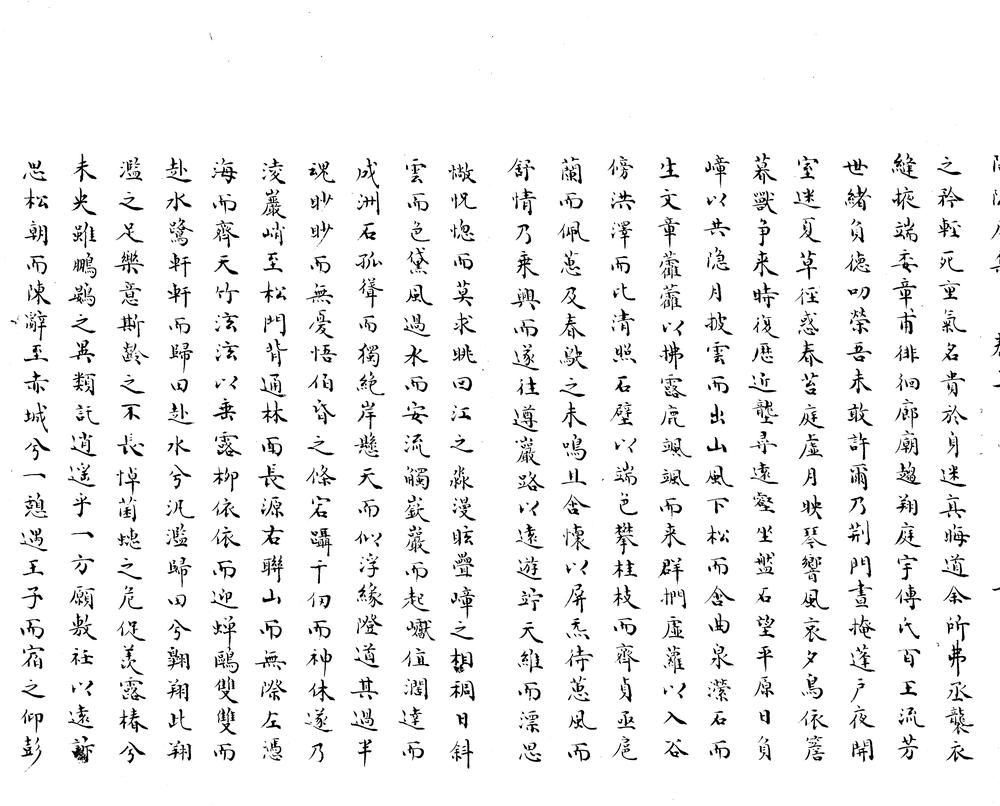 之矜輕死重氣名貴於身迷真晦道余所弗丞襲衣
縫掖端委章甫徘徊廊廟趍翔庭宇傳氏百王流芳
世緒負德叨榮吾未敢許爾乃荆門晝掩蓬戶夜開
室迷夏草徑惑春苔庭虛月映琴響風哀夕鳥依簷
暮獸争来時復歷近壟尋遠壑坐盤石望平原日負
嶂以共隐月披雲而出山風下松而含曲泉瀠石而
生文草藿藿以拂露鹿颷颷而来群捫虛蘿以入谷
傍洪澤而比清照石壁以端色攀桂枝而齊貞亟扈
蘭而佩蕙及春鴃之未鳴且含懷以屏炁待蕙風而
舒情乃乗興而遂往遵巖路以遠遊竚天維而漂思
憿怳惚而莫求眺曰江之淼漫眩疊嶂之相稠日斜
雲而色黛風過水而安流觸嶔巖而起巘值濶達而
成洲石孤聳而獨絶岸懸天而似浮緣隥道其過半
魂眇眇而無憂悟伯昏之條宕躡千仞而神休遂乃
淩巖峭至松門背通林面長源右聯山而無際左憑
海而齊天竹泫泫以垂露柳依依而迎蟬鷗雙雙而
赴水鷺軒軒而歸田赴水兮汎濫歸田兮翱翔此翔
濫之足樂意斯齡之不長悼菌蟪之危促羡靈椿兮
未央雖鵬鷃之異類託逍遥乎一方願敷衽以遠訴
思松朝而陳辭至赤城兮一憩遇王子而宿之仰彭